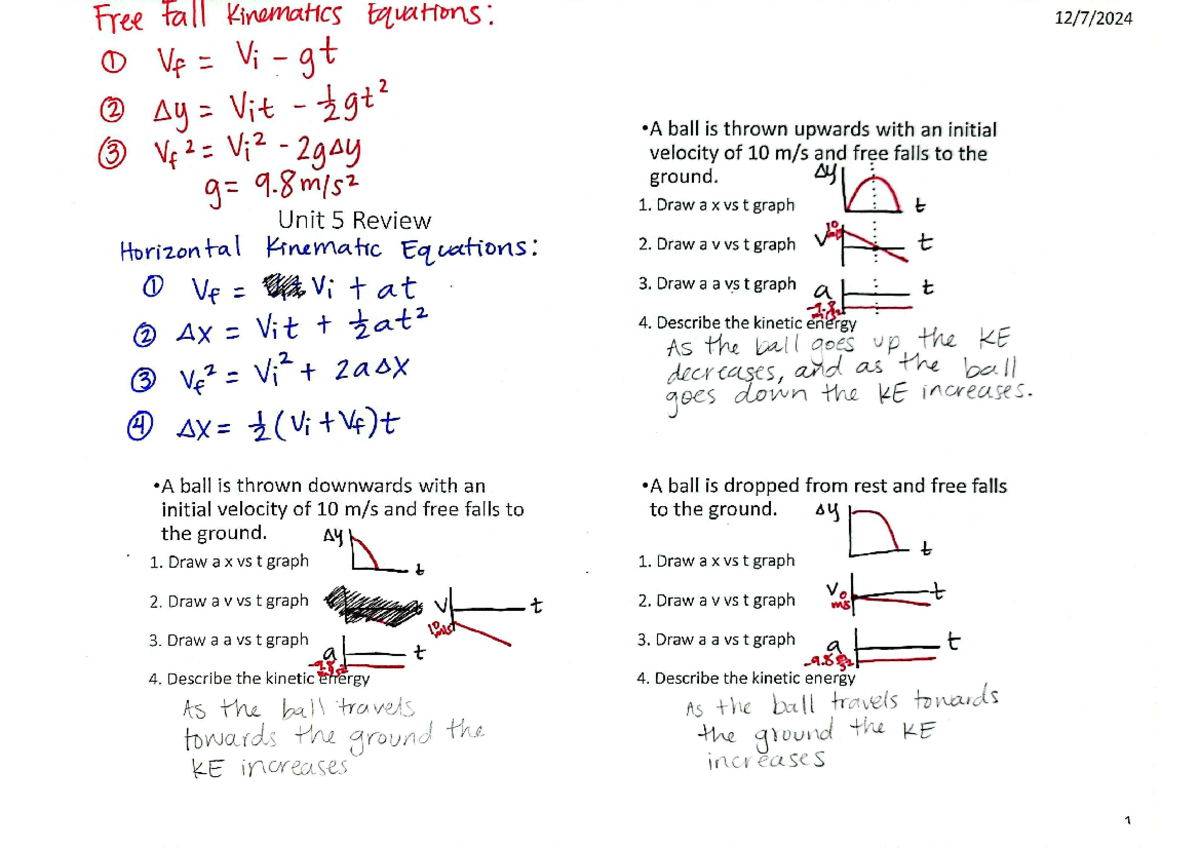 Free Fall Kinematics Equations:
① Vf = Vi - gt
② Δy = Vit - ½gt²
③ Vf² = Vi² - 2gΔy
g = 9.8m/s²
Unit 5 Review
Horizontal Kinematic Equations:
① Vf = Vi + at
② Δx = Vit + ½at²
③ Vf² = Vi² + 2aΔx
④ Δx = ½(Vi + Vf)t
12/7/2024
•A ball is thrown upwards with an initial
velocity of 10 m/s and free falls to the
ground.
Δy
t
1. Draw a x vs t graph
10
2. Draw a v vs t graph
V
t
3. Draw a a vs t graph
a
t
-9.8
4. Describe the kinetic energy
As the ball goes up the KE
decreases, and as the ball
goes down the KE increases.
•A ball is thrown downwards with an
initial velocity of 10 m/s and free falls to
the ground.
Δy
t
1. Draw a x vs t graph
2. Draw a v vs t graph
V
t
10 m/s
3. Draw a a vs t graph
a
t
4. Describe the kinetic energy
As the ball travels
towards the ground the
KE increases
•A ball is dropped from rest and free falls
to the ground.
Δy
t
1. Draw a x vs t graph
2. Draw a v vs t graph
V
0
t
3. Draw a a vs t graph
a
t
-9.8
4. Describe the kinetic energy
As the ball travels towards
the ground the KE
increases
1